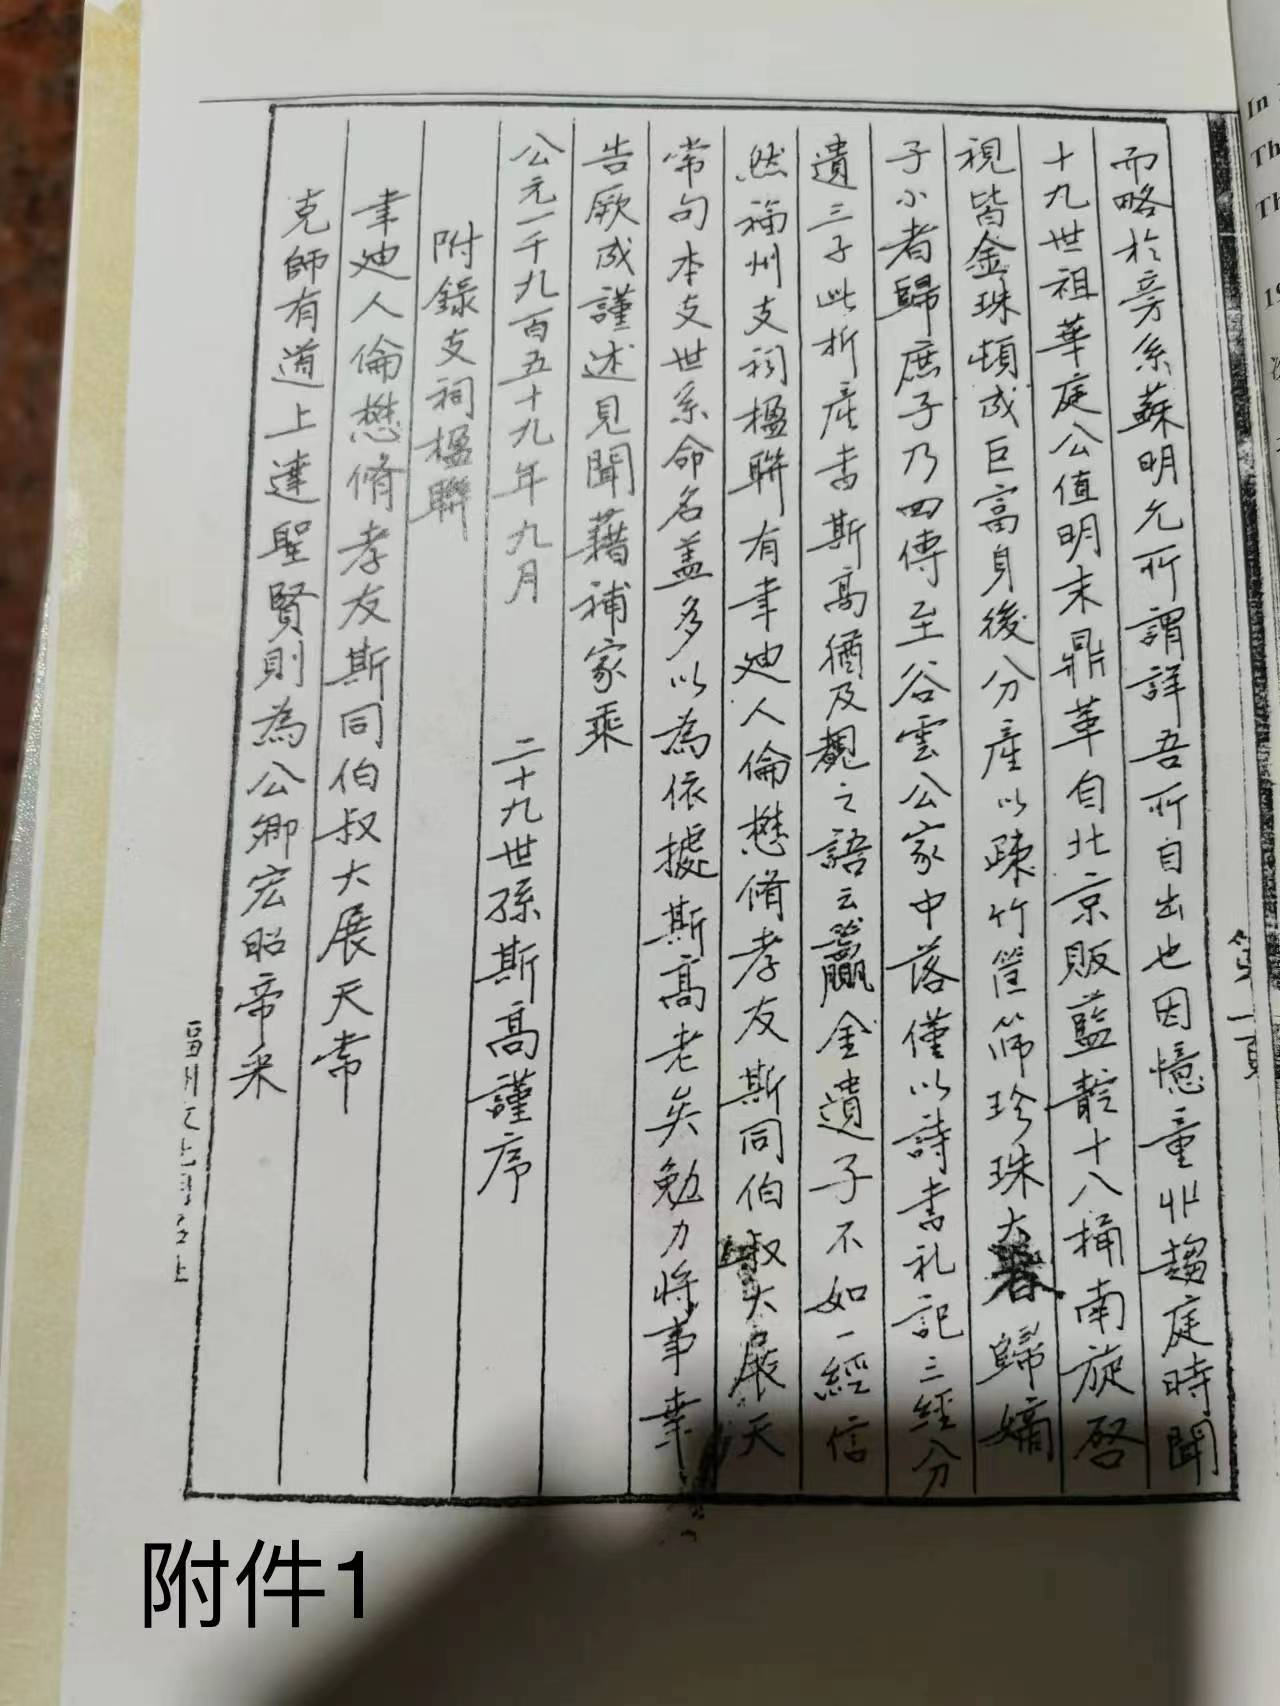 而略於旁系蘇明允所謂詳吾所自出也因憶童丱趨庭時聞
十九世祖華庭公值明末鼎革自北京販藍靛十八桶南旋啓
視皆金珠頓成巨富身後分產以疎竹筐篩珍珠大者歸嫡
子小者歸庶子乃四傳至谷雲公家中落僅以詩書礼記三經分
遺三子此析產書斯高猶及覩之語云籯金遺子不如一經信
然福州支祠楹聯有聿迪人倫懋脩孝友斯同伯叔大展天
常句本支世系命名盖多以為依據斯高老矣勉力將事幸
告厥成謹述見聞藉補家乘
公元一千九百五十九年九月 二十九世孫斯高謹序
附錄支祠楹聯
聿迪人倫懋脩孝友斯同伯叔大展天常
克師有道上達聖賢則為公卿宏昭帝采
In
Th
Th
19
附件1